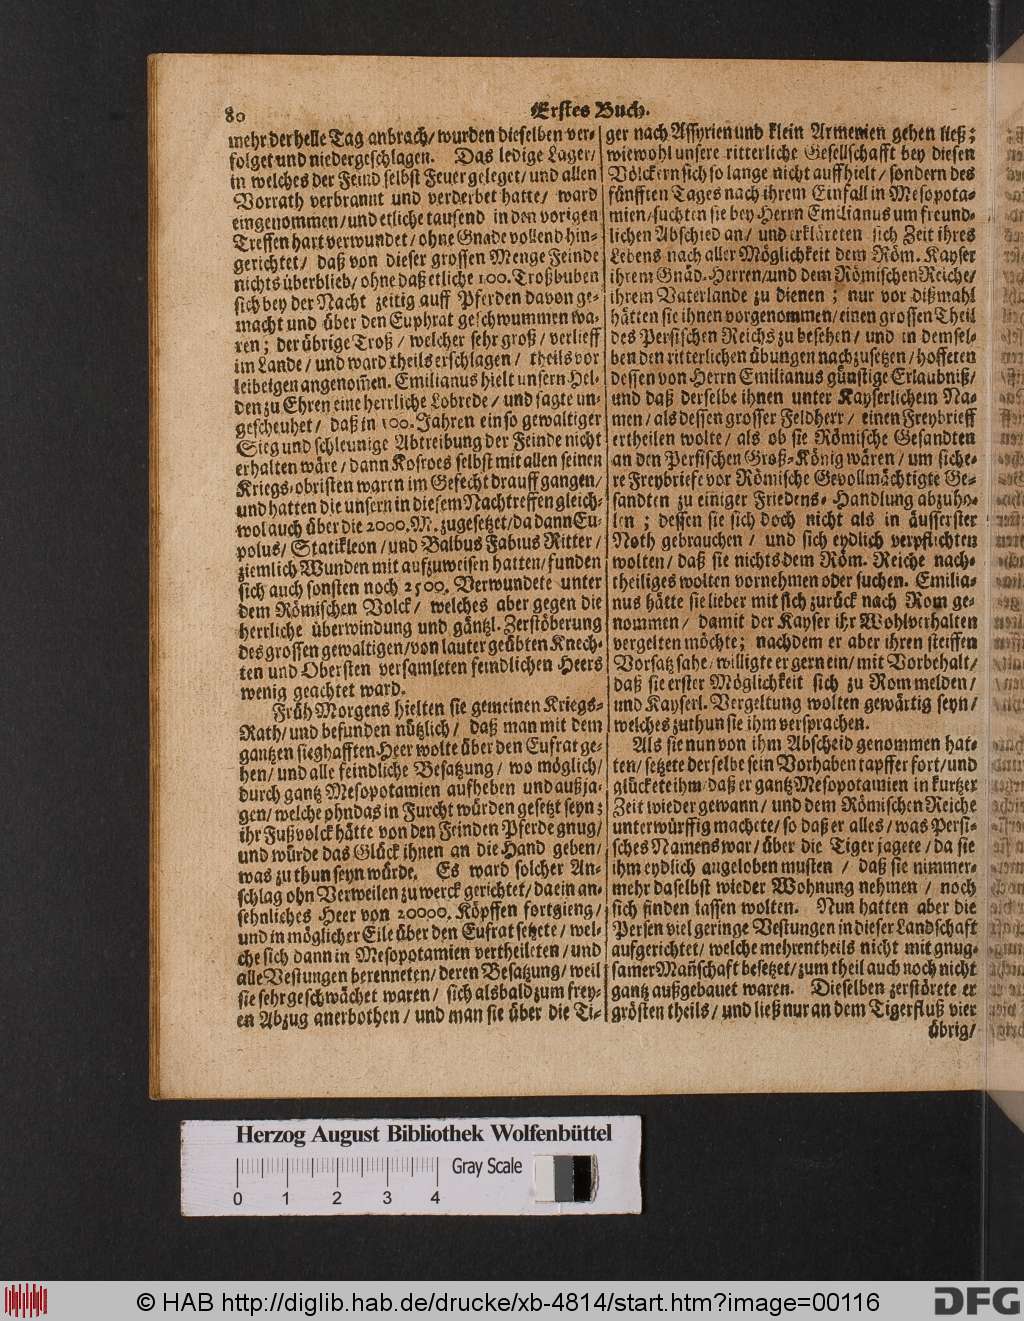 80
Erstes Buch.
mehr der helle Tag anbrach/ wurden dieselben ver-
folget und niedergeschlagen. Das ledige Lager/
in welches der Feind selbst Feuer geleget/ und allen
Vorrath verbrannt und verderbet hatte/ ward
eingenommen/ und etliche tausend in den vorigen
Treffen hart verwundet/ ohne Gnade vollend hin-
gerichtet/ daß von dieser grossen Menge Feinde
nichts überblieb/ ohne daß etliche 100. Troßbuben
sich bey der Nacht zeitig auff Pferden davon ge-
macht und über den Euphrat geschwummen wa-
ren; der übrige Troß/ welcher sehr groß/ verlieff
im Lande/ und ward theils erschlagen/ theils vor
leibeigen angenom̃en. Emilianus hielt unsern Hel-
den zu Ehren eine herrliche Lobrede/ und sagte un-
gescheuhet/ daß in 100. Jahren ein so gewaltiger
Sieg und schleunige Abtreibung der Feinde nicht
erhalten wäre/ dann Kosroes selbst mit allen seinen
Kriegs-obristen waren im Gefecht drauff gangen/
und hatten die unsern in diesem Nachtreffen gleich-
wol auch über die 2000. M. zugesetzet/ da dann Eu-
polus/ Statikleon/ und Balbus Fabius Ritter/
ziemlich Wunden mit aufzuweisen hatten/ funden
sich auch sonsten noch 2500. Verwundete unter
dem Römischen Volck/ welches aber gegen die
herrliche überwindung und gäntzl. Zerstöberung
des grossen gewaltigen/ von lauter geübten Knech-
ten und Obersten versamleten feindlichen Heers
wenig geachtet ward.
Früh Morgens hielten sie gemeinen Kriegs-
Rath/ und befunden nützlich/ daß man mit dem
gantzen sieghafften Heer wolte über den Eufrat ge-
hen/ und alle feindliche Besatzung/ wo möglich/
durch gantz Mesopotamien aufheben und außja-
gen/ welche ohndas in Furcht würden gesetzt seyn;
ihr Fußvolck hätte von den Feinden Pferde gnug/
und würde das Glück ihnen an die Hand geben/
was zu thun seyn würde. Es ward solcher An-
schlag ohn Verweilen zu werck gerichtet/ da ein an-
sehnliches Heer von 20000. Köpffen fortgieng/
und in möglicher Eile über den Eufrat setzete/ wel-
che sich dann in Mesopotamien vertheileten/ und
alle Vestungen berenneten/ deren Besatzung/ weil
sie sehr geschwächet waren/ sich alsbald zum frey-
en Abzug anerbothen/ und man sie über die Ti-
ger nach Assyrien und klein Armenien gehen ließ;
wiewohl unsere ritterliche Gesellschafft bey diesen
Völckern sich so lange nicht auffhielt/ sondern des
fünfften Tages nach ihrem Einfall in Mesopota-
mien/ suchten sie bey Herrn Emilianus um freund-
lichen Abschied an/ und erkläreten sich Zeit ihres
Lebens nach aller Möglichkeit dem Röm. Kayser
ihrem Gnäd. Herren/ und dem Römischen Reiche/
ihrem Vaterlande zu dienen; nur vor dißmahl
hätten sie ihnen vorgenommen/ einen grossen Theil
des Persischen Reichs zu besehen/ und in demsel-
ben den ritterlichen übungen nachzusetzen/ hoffeten
dessen von Herrn Emilianus günstige Erlaubniß/
und daß derselbe ihnen unter Kayserlichem Na-
men/ als dessen grosser Feldherr/ einen Freybrieff
ertheilen wolte/ als ob sie Römische Gesandten
an den Persischen Groß-König wären/ um siche-
re Freybriefe vor Römische Gevollmächtigte Ge-
sandten zu einiger Friedens-Handlung abzuho-
len; dessen sie sich doch nicht als in äusserster
Noth gebrauchen/ und sich eydlich verpflichten
wolten/ daß sie nichts dem Röm. Reiche nach-
theiliges wolten vornehmen oder suchen. Emilia-
nus hätte sie lieber mit sich zurück nach Rom ge-
nommen/ damit der Kayser ihr Wohlverhalten
vergelten möchte; nachdem er aber ihren steiffen
Vorsatz sahe/ willigte er gern ein/ mit Vorbehalt/
daß sie erster Möglichkeit sich zu Rom melden/
und Kayserl. Vergeltung wolten gewärtig seyn/
welches zu thun sie ihm versprachen.
Als sie nun von ihm Abscheid genommen hat-
ten/ setzete derselbe sein Vorhaben tapffer fort/ und
glückete ihm/ daß er gantz Mesopotamien in kurtzer
Zeit wieder gewann/ und dem Römischen Reiche
unterwürffig machete/ so daß er alles/ was Persi-
sches Namens war/ über die Tiger jagete/ da sie
ihm eydlich angeloben musten/ daß sie nimmer-
mehr daselbst wieder Wohnung nehmen/ noch
sich finden lassen wolten. Nun hatten aber die
Persen viel geringe Vestungen in dieser Landschaft
aufgerichtet/ welche mehrentheils nicht mit gnug-
samer Mañschaft besetzet/ zum theil auch noch nicht
gantz außgebauet waren. Dieselben zerstörete er
grösten theils/ und ließ nur an dem Tigerfluß vier
übrig/
Herzog August Bibliothek Wolfenbüttel
Gray Scale
0 1 2 3 4
© HAB http://diglib.hab.de/drucke/xb-4814/start.htm?image=00116
DFG